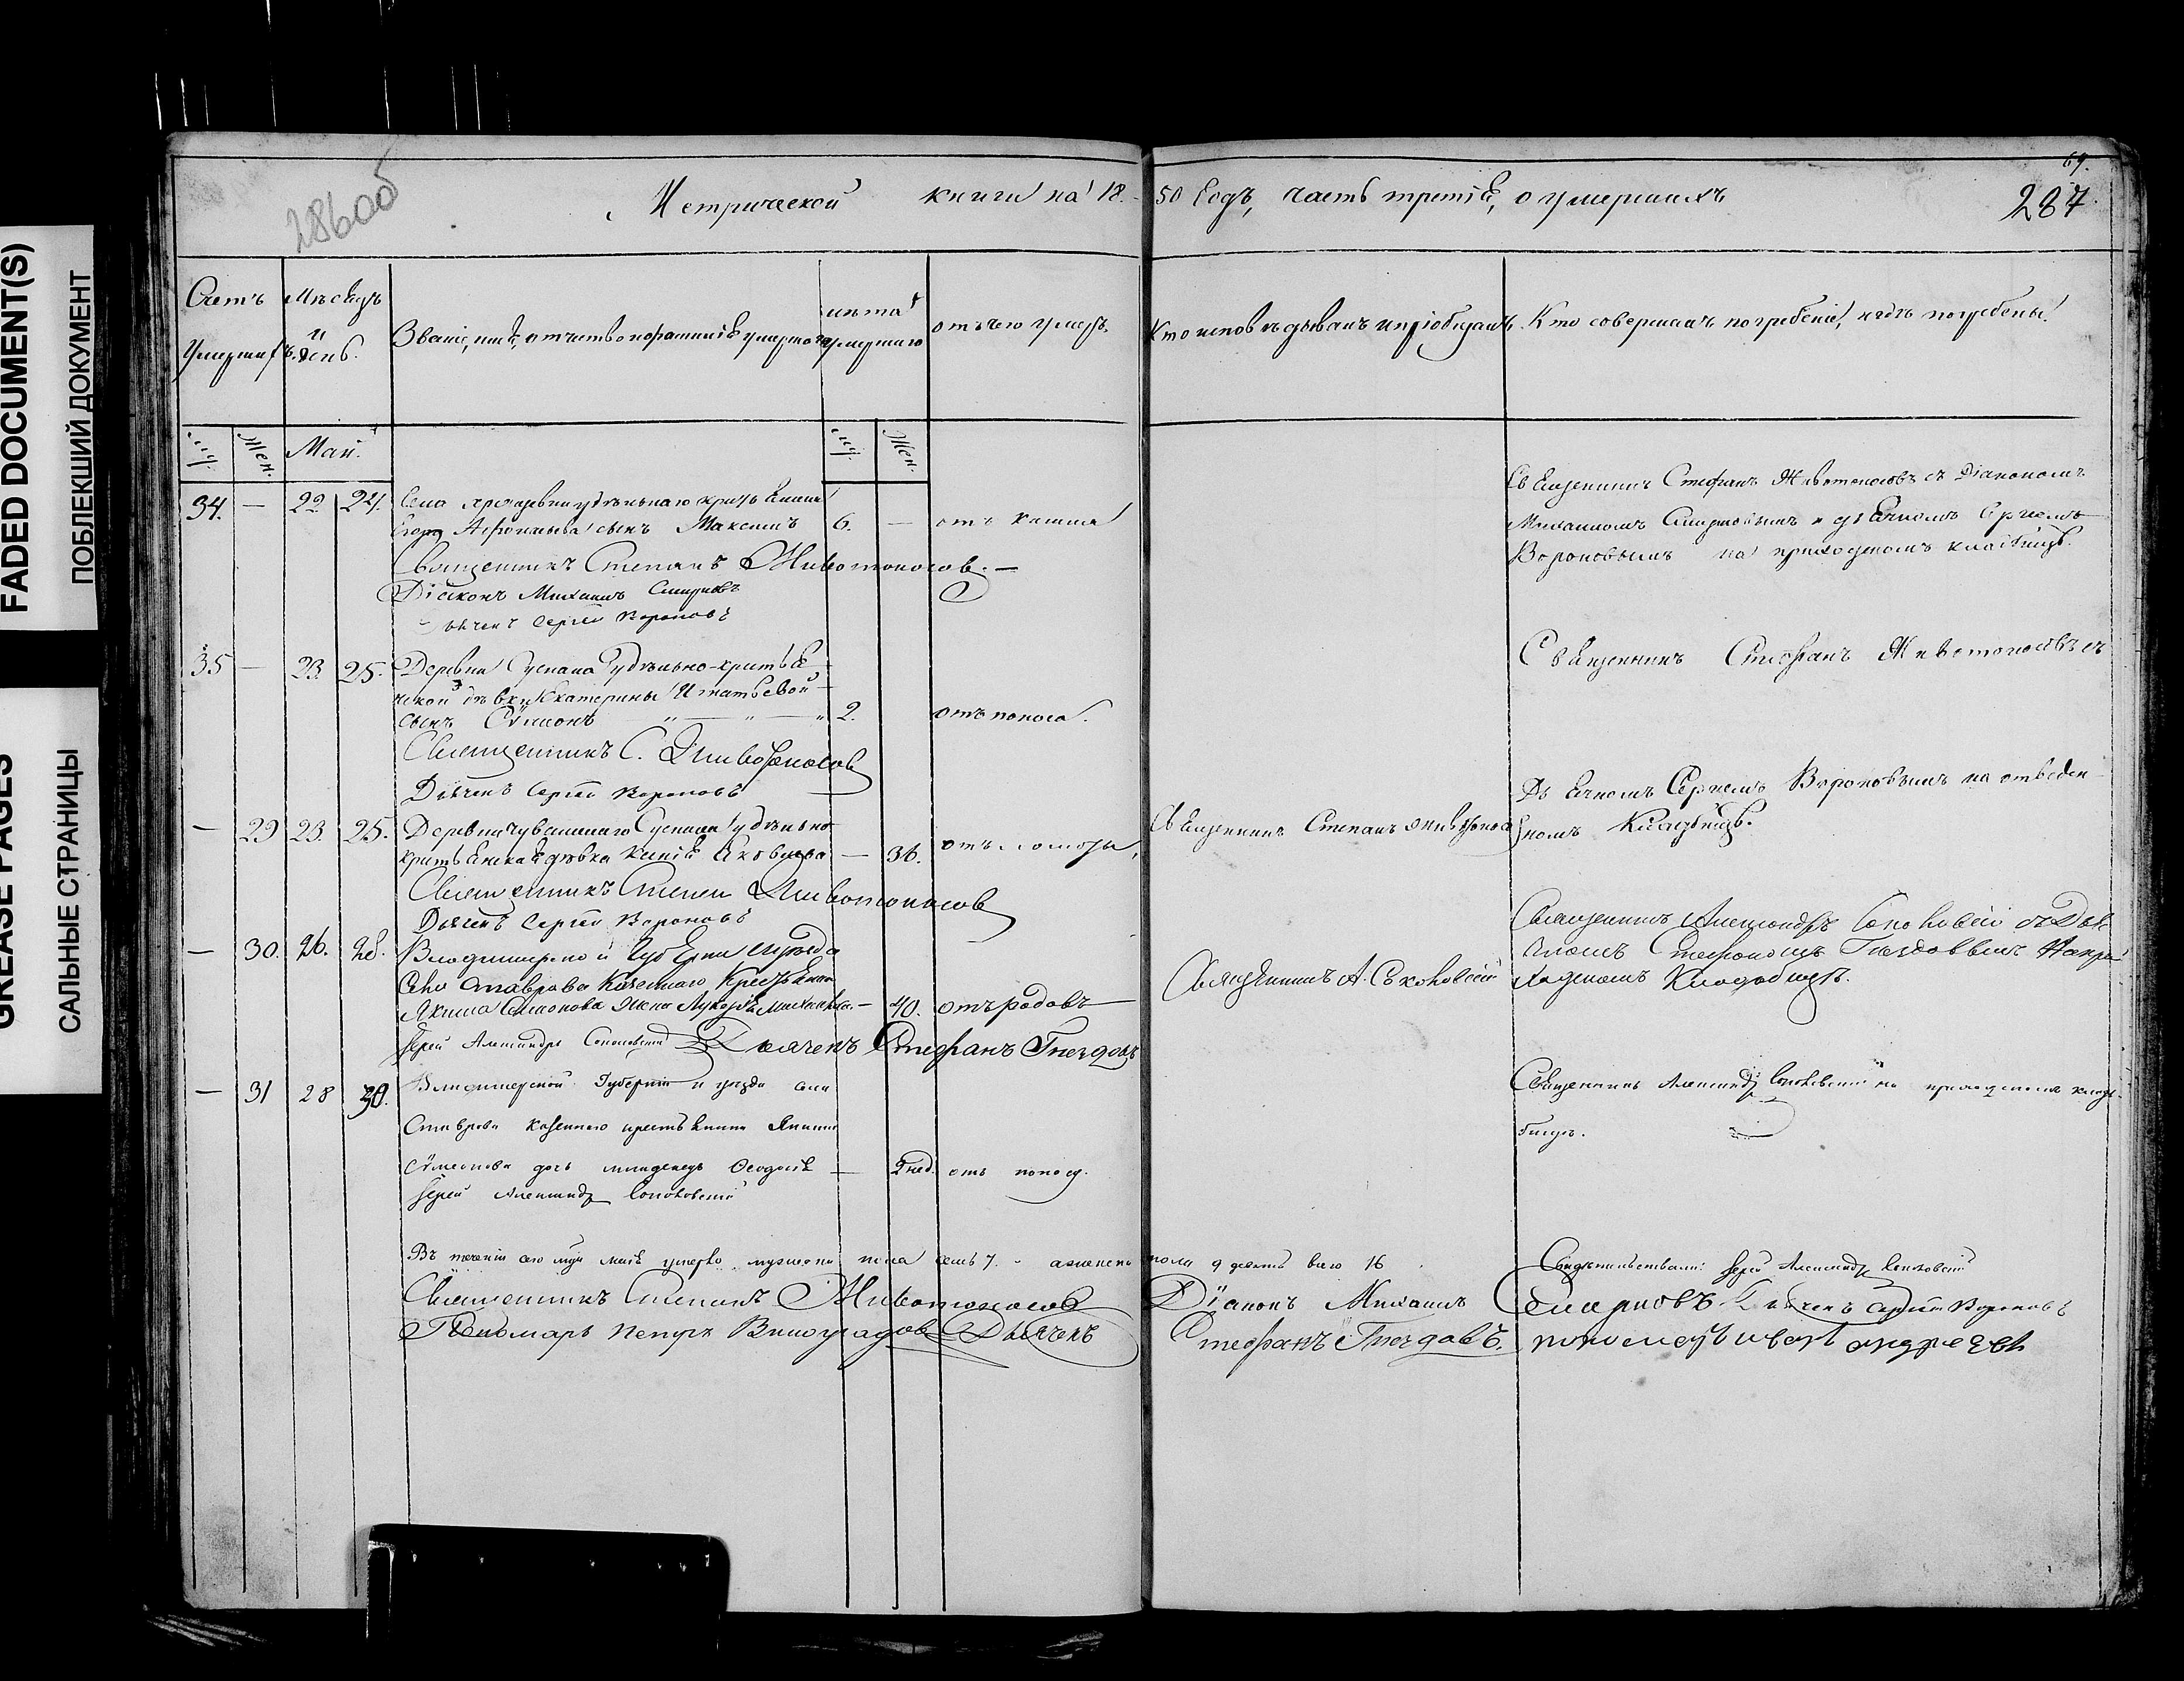 FADED DOCUMENT(S)
ПОБЛЕКШИЙ ДОКУМЕНТ
GREASE PAGES
САЛЬНЫЕ СТРАНИЦЫ
286об
69.
287.
Метрической книги на 18 50 Годъ, часть третія, о умершихъ
Счетъ умершихъ
Мѣсяцъ и день.
Званіе, имя, отчество и фамилія умершаго
лѣта умершаго
отъ чего умеръ
Кто исповѣдывалъ и пріобщалъ.
Кто совершалъ погребеніе, и гдѣ погребены.
муж. Жен. Маій. муж. Жен.
34. — 22. 24. Села удѣльнаго крестьянина
Сынъ Максимъ 6. — отъ кашля
Священникъ Стефанъ Животоносовъ съ Діакономъ
Михаиломъ Смирновымъ и дьячкомъ Сергіемъ
Вороновымъ на приходскомъ кладбищѣ.
Священникъ Степанъ Животоносов. —
Діаконъ Михаилъ Смирновъ
Дьячекъ Сергій Вороновъ
35 — 23. 25. Деревни Суспана удѣльно-крестья
нской дѣвки Екатерины Игнатьевой
сынъ Сѵмеонъ — " — " — " 2. отъ поноса.
Священникъ Стефанъ Животоносовъ съ
Дьячкомъ Сергіемъ Вороновымъ на отведен
номъ Кладбищѣ.
Священникъ С. Животоносов
Дьячекъ Сергій Вороновъ
— 29 23. 25. Деревни чувашскаго Суспана удѣльно
крестьянская дѣвка Яковлева — 36. отъ
Священникъ Степанъ Животонос
Священникъ Степан Животоносов
Дьячекъ Сергій Вороновъ
— 30. 26. 28. Владимирской Губерніи и уѣзда
Села Ставрова Казеннаго Крестьянина
Якима Симонова жена Михайлова. — 40. отъ родовъ
Священникъ А. Соколовскій
Священникъ Александръ Соколовскій съ Дья
чкомъ Стефаномъ Гнездовымъ На при
ходскомъ Кладбищѣ.
Іерей Александръ Соколовскій Дьячекъ Стефанъ Гнездовъ
— 31 28 30. Владимирской Губерніи и уѣзда села
Ставрова казеннаго крестьянина Якима
Сѵмеонова дочь младенецъ Ѳеодосія — 2 нед. отъ поноса.
Священникъ Александръ Соколовскій на приходскомъ клад-
бищѣ.
Іерей Александръ Соколовскій
Въ теченіи сего мая мѣсяца умерло мужеска пола семь 7. а женска пола 9 девять всего 16
Свидѣтельствовали: Іерей Александръ Соколовскій
Священникъ Степанъ Животоносов Діаконъ Михаилъ Смирновъ Дьячекъ Сергій Вороновъ
Пономарь Петръ Виноградовъ Дьячекъ Стефанъ Гнездовъ. пономарь иванъ андреевъ